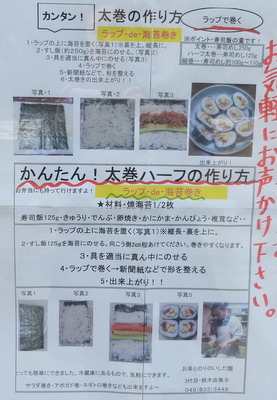 カンタン！
太巻の作り方
ラップで巻く
ラップ・de・海苔巻き
※ポイント・寿司飯の量です！
太巻・・・寿司めし250g
ハーフ太巻・・寿司めし125g
細巻・・・寿司めし約100g～110g
1・ラップの上に海苔を置く（写真1）※裏を上。縦長に。
2・すし飯（約250g）を海苔にのせる。（写真2）
3・具を適当に真ん中にのせる。（写真3）
4・ラップで巻く
5・新聞紙などで、形を整える
6・太巻きの出来上がり！！
写真1
写真2
写真3
出来上がり！！
お気軽にお声かけ下さい。
かんたん！太巻ハーフの作り方
お弁当にも持って行けますよ！
ラップ・de・海苔巻き
★材料・焼海苔1/2枚
寿司飯125g・きゅうり・でんぶ・卵焼き・かにかま・かんぴょう・椎茸など・・
1・ラップの上に海苔を置く（写真1）※縦長・裏を上に。
2・すし飯125gを海苔にのせる。向こう側2cm程あけてください。巻きやすくなります。
3・具を適当に真ん中にのせる
4・ラップで巻く→新聞紙などで形を整える
5・出来上がり！！
写真1
写真2
写真3
とっても簡単にできました。冷蔵庫にあるもので、気軽にできます。
サラダ巻き・アボガド巻き・ネギトロ巻きなども出来ますよ～
お茶とのりのいしだ園
3代目・鈴木由美子
045/833/3448